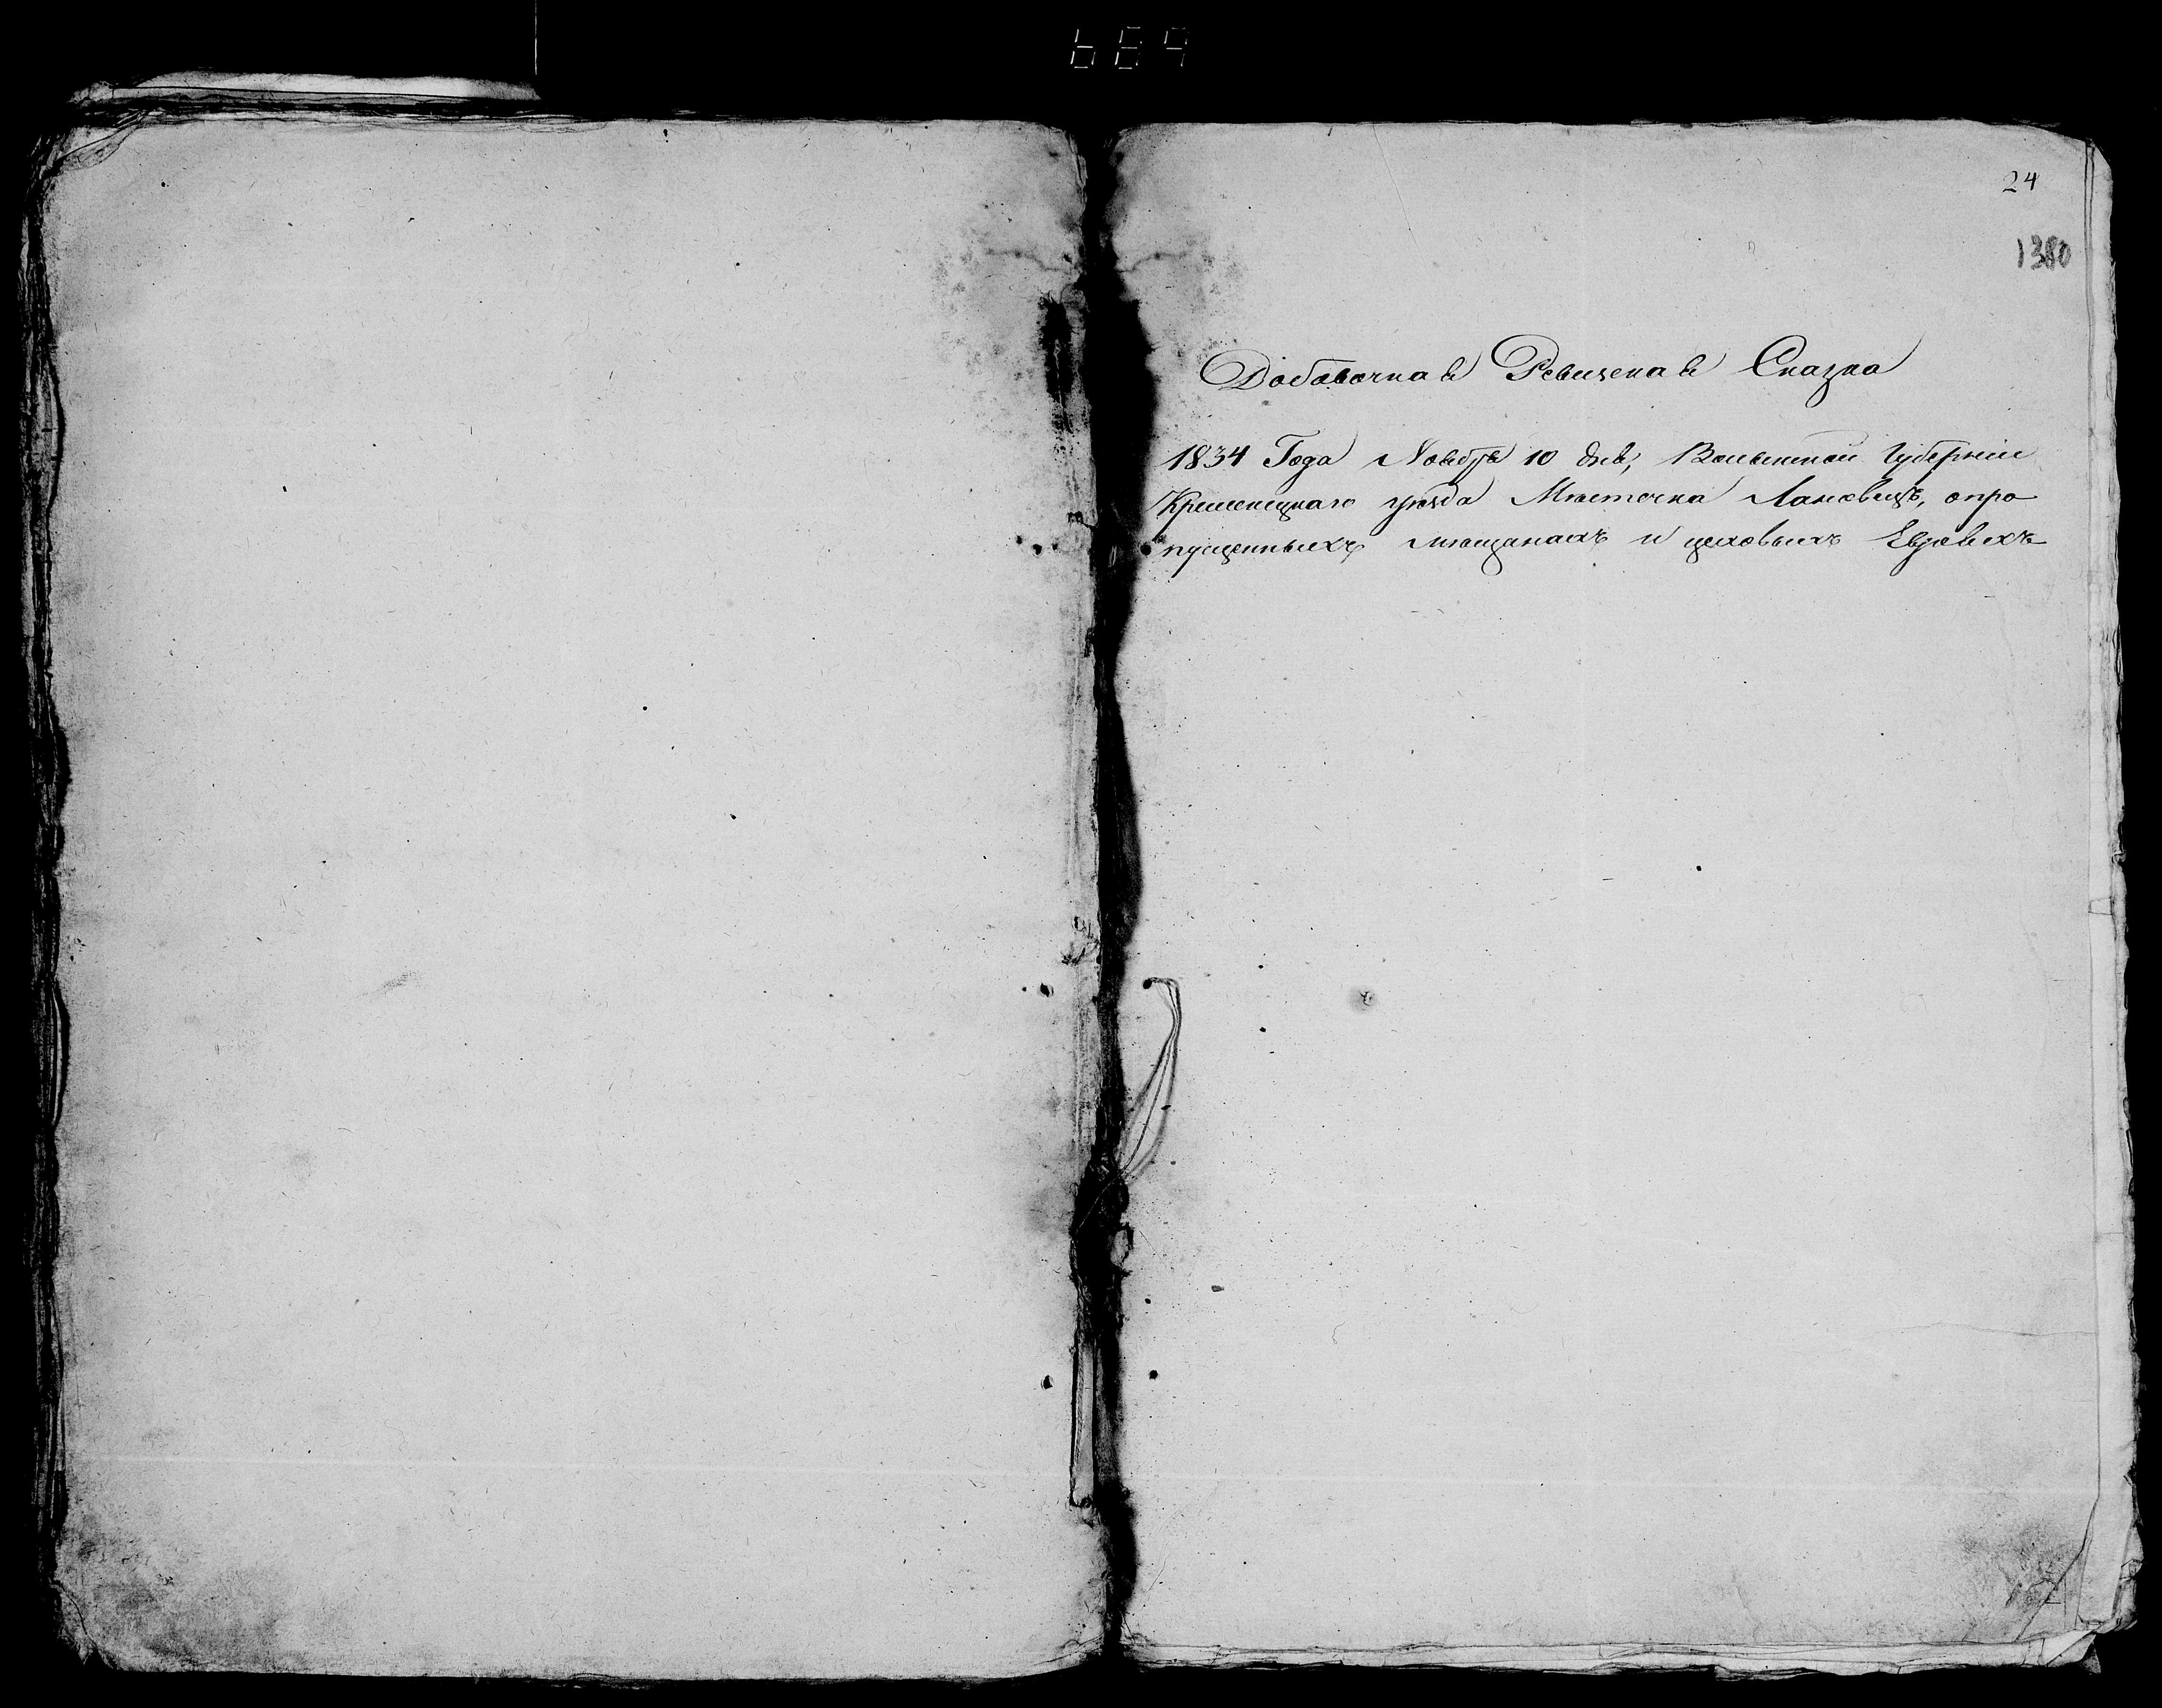 24
1380
Добавочная Ревизская Сказка
1834 Года Ноября 10 дня, Волынской Губерніи
Кременецкаго уѣзда Мѣстечка Лановецъ, опро
пущенныхъ мѣщанахъ и цеховыхъ Евреяхъ